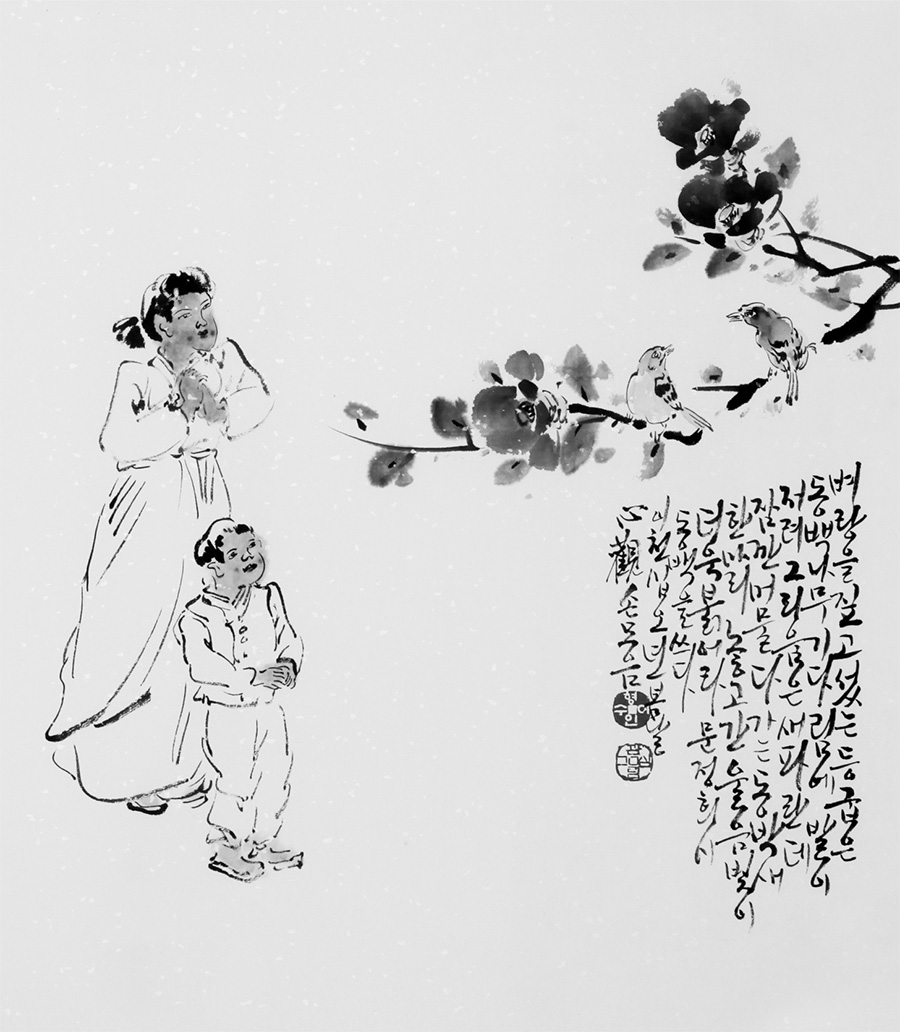 벼랑을 짚고 섰는 등 굽은
동백나무 기다림에 발이
저려 그리움은 새파란데
잠깐 머물다 가는 동박새
한 마리 놓고 간 울음빛이
더욱 붉어라 문정희 시
동백을 쓰다
이천십오년 봄날
心觀